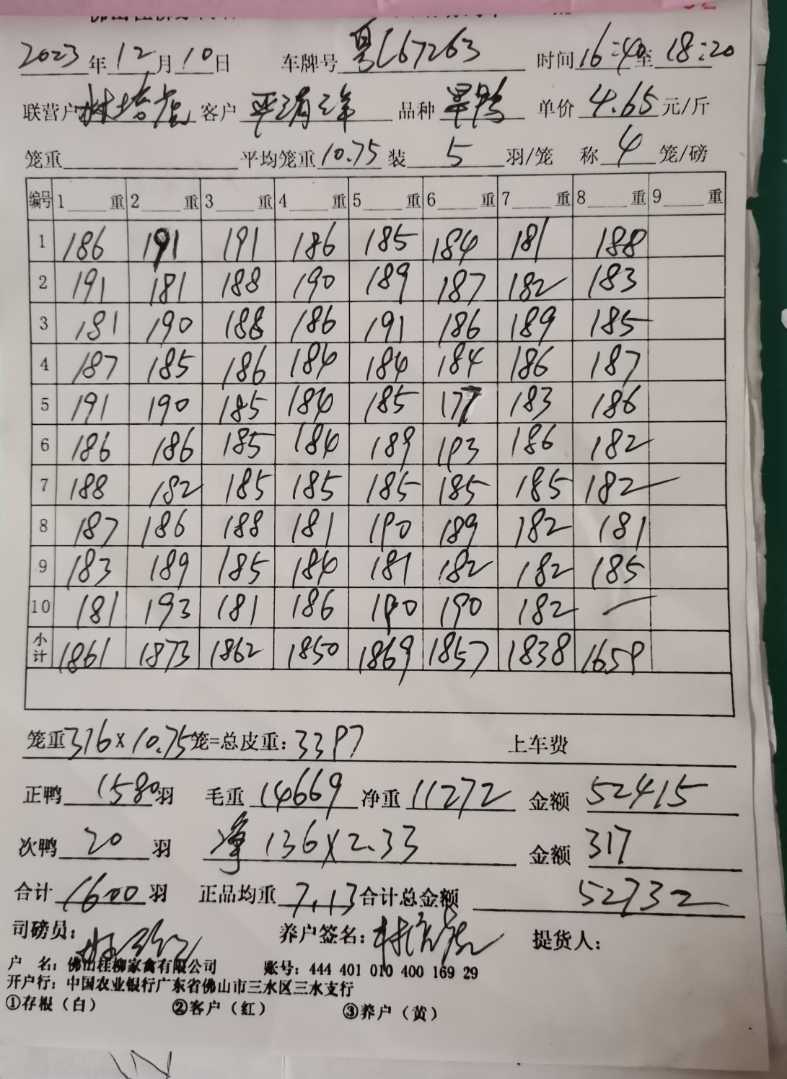 2023年12月10日 车牌号 粤C67263 时间16:40至18:20
联营户林培 客户 平 品种 旱鸭 单价 4.65元/斤
笼重 平均笼重10.75装 5 羽/笼 称 4 笼/磅
编号 1 重 2 重 3 重 4 重 5 重 6 重 7 重 8 重 9 重
1 186 191 191 186 185 184 181 188
2 191 181 188 190 189 187 182 183
3 181 190 188 186 191 186 189 185
4 187 185 186 184 184 184 186 187
5 191 190 185 184 185 177 183 186
6 186 186 185 184 189 193 186 182
7 188 182 185 185 185 185 185 182
8 187 186 188 181 190 189 182 181
9 183 189 185 184 181 182 182 185
10 181 193 181 186 190 190 182 —
小计 1861 1873 1862 1850 1869 1857 1838 1659
笼重316×10.75笼=总皮重:3397 上车费
正鸭 1580羽 毛重 14669 净重 11272 金额 52415
次鸭 20 羽 净 136×2.33 金额 317
合计 1600羽 正品均重 7.13合计总金额 52732
司磅员: 养户签名: 林 提货人:
户 名:佛山桂柳家禽有限公司 账号:444 401 010 400 169 29
开户行:中国农业银行广东省佛山市三水区三水支行
①存根(白) ②客户(红) ③养户(黄)